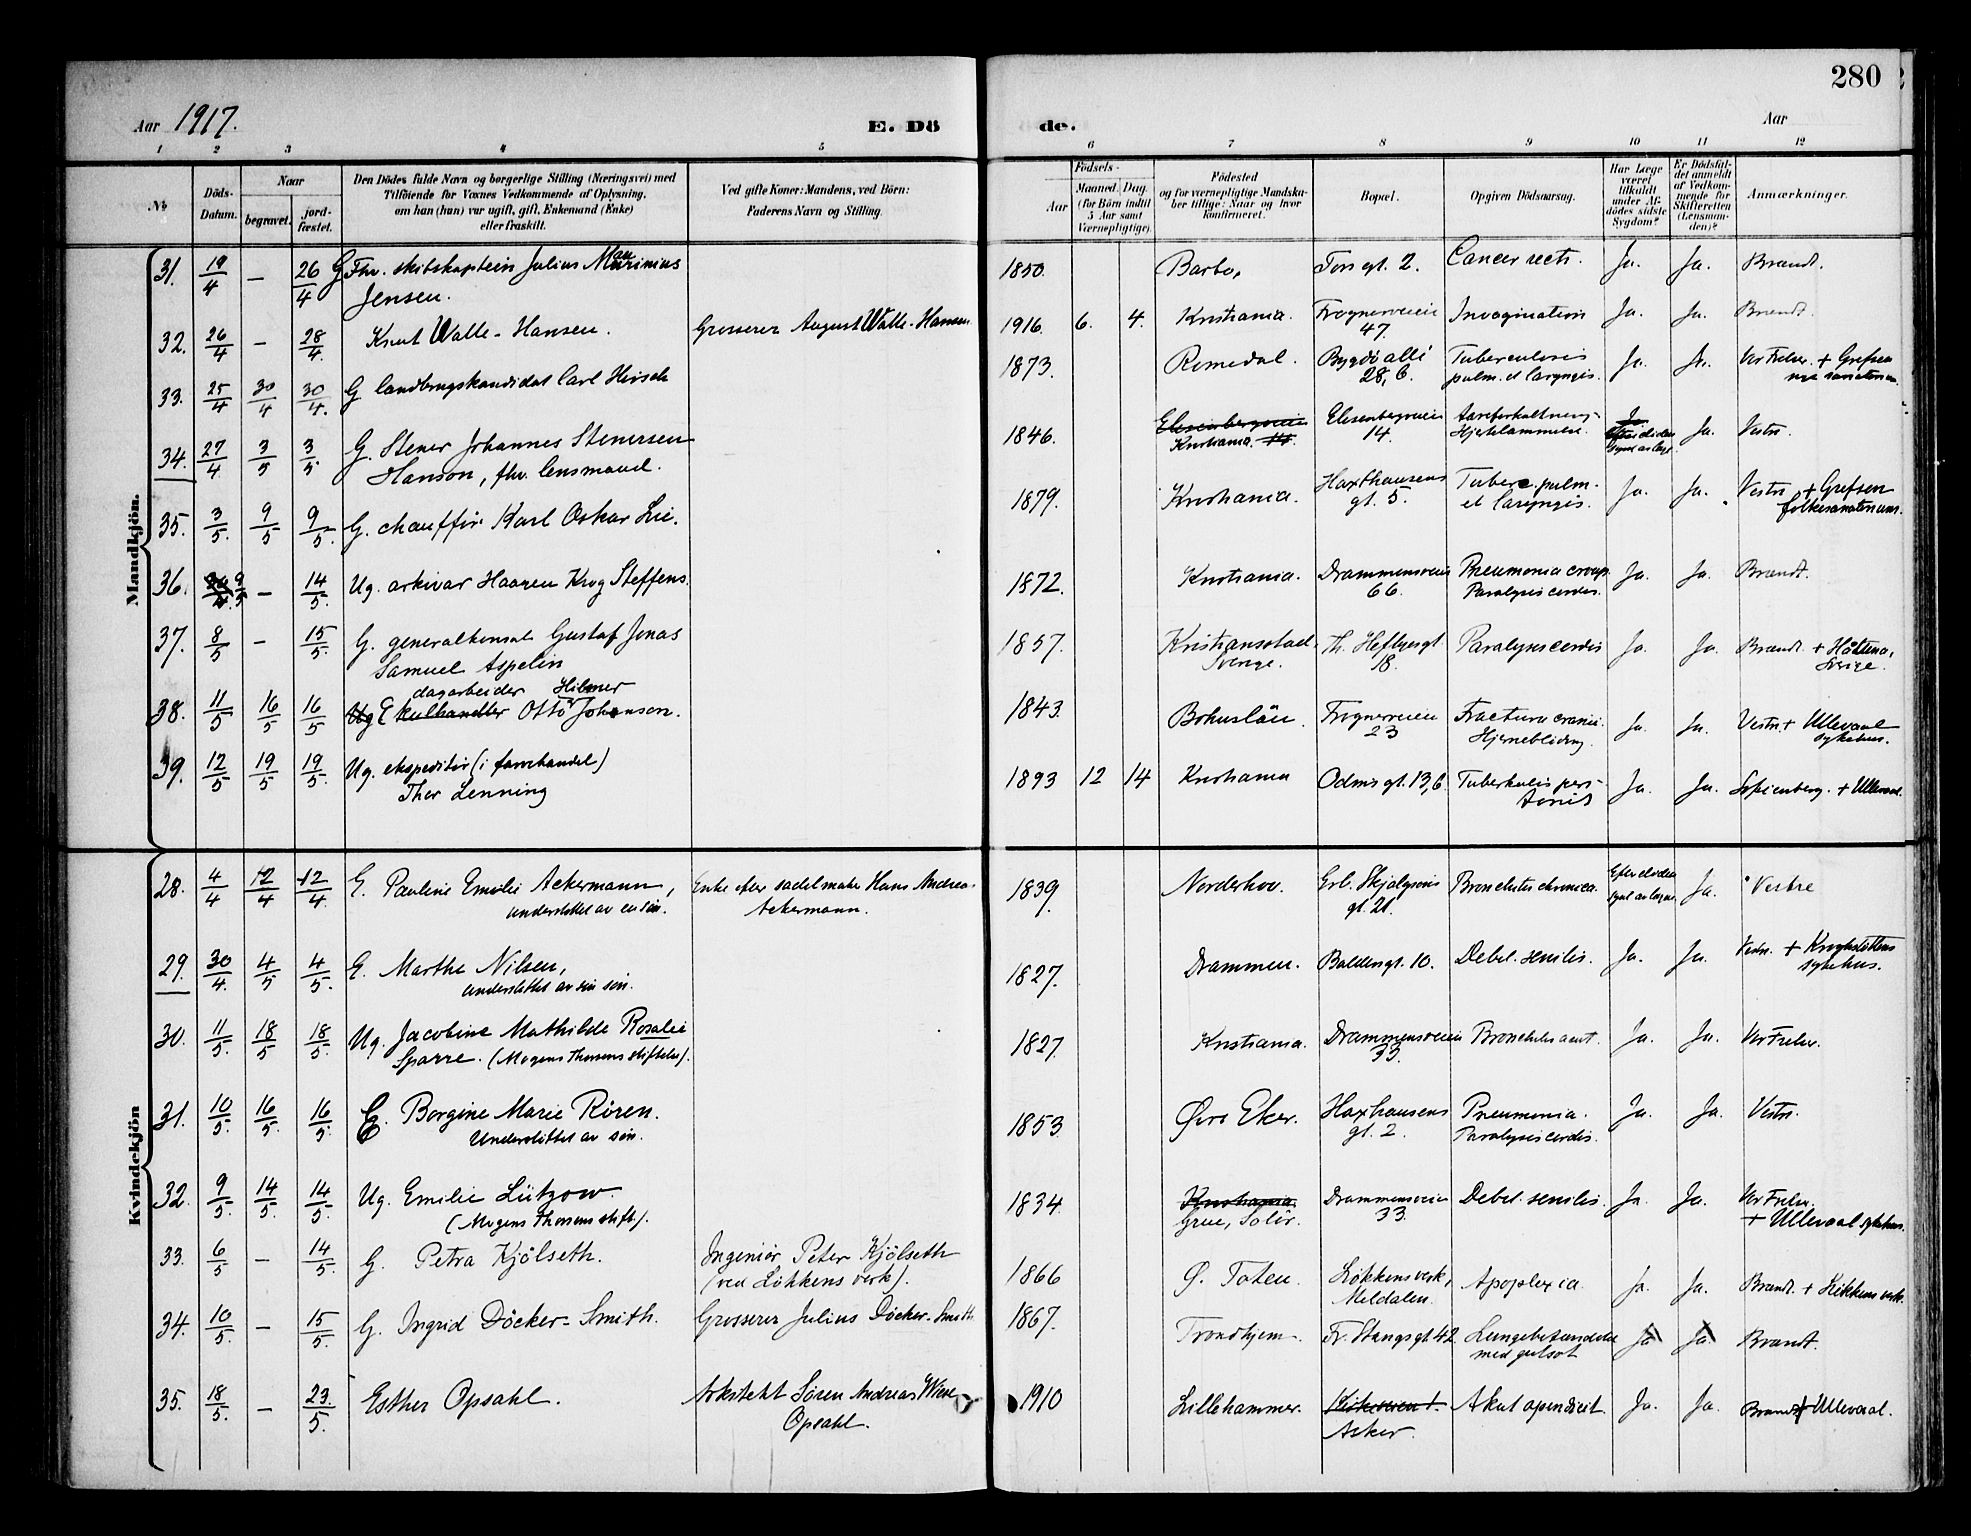 280
Aar 1917.
E. Dö
de.
Aar
1 2 3 4 5 6 7 8 9 10 11 12
No.
Döds-Datum.
Naar
begravet.
jord-fæstet.
Den Dödes fulde Navn og borgerlige Stilling (Næringsvei) med
Tilföiende for Voxnes Vedkommende af Oplysning,
om han (hun) var ugift, gift, Enkemand (Enke)
eller fraskilt.
Ved gifte Koner: Mandens, ved Börn:
Faderens Navn og Stilling.
Födsels-
Aar
Maaned. Dag.
(for Börn indtil
5 Aar samt
Værnepligtige).
Födested
og for værnepligtige Mandska-
ber tillige: Naar og hvor
konfirmeret.
Bopæl.
Opgiven Dödsaarsag.
Har Læge
været
tilkaldt
under Af-
dödes sidste
Sygdom?
Er Dödsfal-
det anmeldt
af Vedkom-
mende for
Skifteretten
(Lensman-
den)?
Anmærkninger.
Mandkjön.
31. 19/4 — 26/4 G Fhv. skibskaptein Julius Marinius
Jensen.
1850. Barbo, Torsgt. 2. Cancer recti. Ja. Ja. Brandt.
32. 26/4 — 28/4. Knut Walle-Hansen. Grosserer August Walle-Hansen
1916. 6. 4. Kristiania. Frognerveien 47. Invagination Ja. Ja. Brandt.
33. 25/4 30/4 30/4. G landbrugskandidat Carl Hirsch
1873. Romedal. Bygdö allé 28, b. Tuberculosis pulm. et laryngis. Ja. Ja. Vor Frelser + Grefsen
34. 27/4 3/5 3/5. G. Stener Johannes Stenersen
Hanson, fhv. lensmand.
1846. Elisenbergveien 14. Kristiania. Elisenbergveien 14. Aareforkalkning Hjertelammelse. Ja. Vestre.
35. 3/5. 9/5 9/5. G. chauffør Karl Oskar Lie.
1879. Kristiania. Haxthausens gt. 5. Tuberc. pulm. et laryngis. Ja. Ja. Vestre + Grefsen folkesanatorium.
36. 9/5 — 14/5. Ug. arkivar Haaren Krog Steffens.
1872. Kristiania. Drammensveien 66. Pneumonia croup. Paralysis cordis. Ja. Ja. Brandt.
37. 8/5 - 15/5. G. generalkonsul Gustaf Jonas
Samuel Aspelin
1857. Kristiansstad, Sverige. Th. Heftyesgt. 18. Paralysis cordis Ja. Ja. Brandt.
38. 11/5 16/5 16/5 Ug E kulhandler dagarbeider Otto Hilmer Johanson.
1843. Bohuslän. Frognerveien 23 Fractura cranii. Hjerneblödn. Ja. Ja. Vestre + Ullevaal sykehus.
39. 12/5 19/5 19/5 Ug. ekspeditör (i farvehandel)
Thor Lenning
1893 12 14 Kristiania Odins gt. 13, b. Tuberkulös peritonit Ja. Ja. Sofienberg. + Ullevaal.
Kvindekjön
28. 4/4 12/4 12/4. E. Pauline Emilie Ackermann,
understöttet av en sön. Enke efter sadelmaker Hans Andreas
Ackermann.
1839. Norderhov. Erl. Skjalgsöns gt. 21. Bronchitis chronica. Ja. Vestre
29. 30/4. 4/5 4/5. E. Marthe Nilsen,
understöttet av sin sön.
1827. Drammen. Baldersgt. 10. Debil. senilis. Ja. Ja. Vestre + Krohgstöttens sykehus.
30. 11/5. 18/5 18/5. Ug. Jacobine Mathilde Rosalie
Sparre. (Mogens Thorsens stiftelse).
1827. Kristiania. Drammensveien 33. Bronchitis acut. Ja. Ja. Vor Frelser.
31. 10/5. 16/5. 16/5. E. Borgine Marie Rören.
Understöttet av sön.
1853. Øvre Eker. Haxthausens gt. 2. Pneumonia. Paralysis cordis. Ja. Ja. Vestre.
32. 9/5. 14/5. 14/5. Ug. Emilie Lützow.
(Mogens Thorsens stift.).
1834. Kristiania Grue, Solör. Drammensveien 33. Debil. senilis. Ja. Ja. Vor Frelser. + Ullevaal sykehus.
33. 6/5 — 14/5. G. Petra Kjölseth. Ingeniör Peter Kjölseth
(ved Lökkens verk).
1866 Ø. Toten. Løkkens verk, Meldalen. Apoplexia Ja. Ja. Brandt. + Løkkens verk.
34. 10/5. — 15/5. G. Ingrid Döcker-Smith. Grosserer Julius Döcker-Smith
1867. Trondhjem. Fr. Stangsgt. 42 Lungebetændelse med gulsot Ja Ja. Brandt.
35. 18/5. — 23./5. Esther Opsahl. Arkitekt Sören Andreas Wiese
Opsahl.
1910 Lillehammer. Asker. Akut apendicit. Ja. Ja. Brandt + Ullevaal.